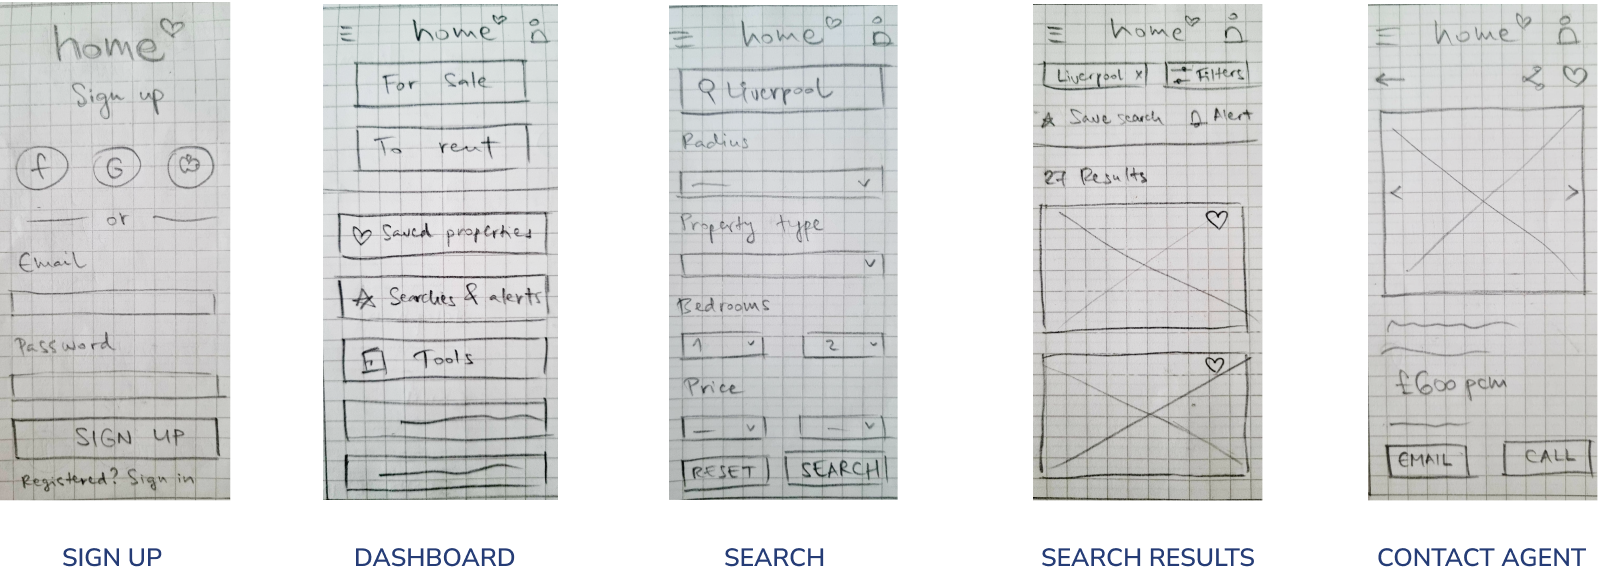 home
Sign up
f G
or
Email
Password
SIGN UP
Registered? Sign in
SIGN UP
home
For Sale
To rent
Saved properties
Searches & alerts
Tools
DASHBOARD
home
Liverpool
Radius
Property type
Bedrooms
1 2
Price
RESET SEARCH
SEARCH
home
Liverpool x Filters
Save search Alert
27 Results
SEARCH RESULTS
home
£600 pcm
EMAIL CALL
CONTACT AGENT